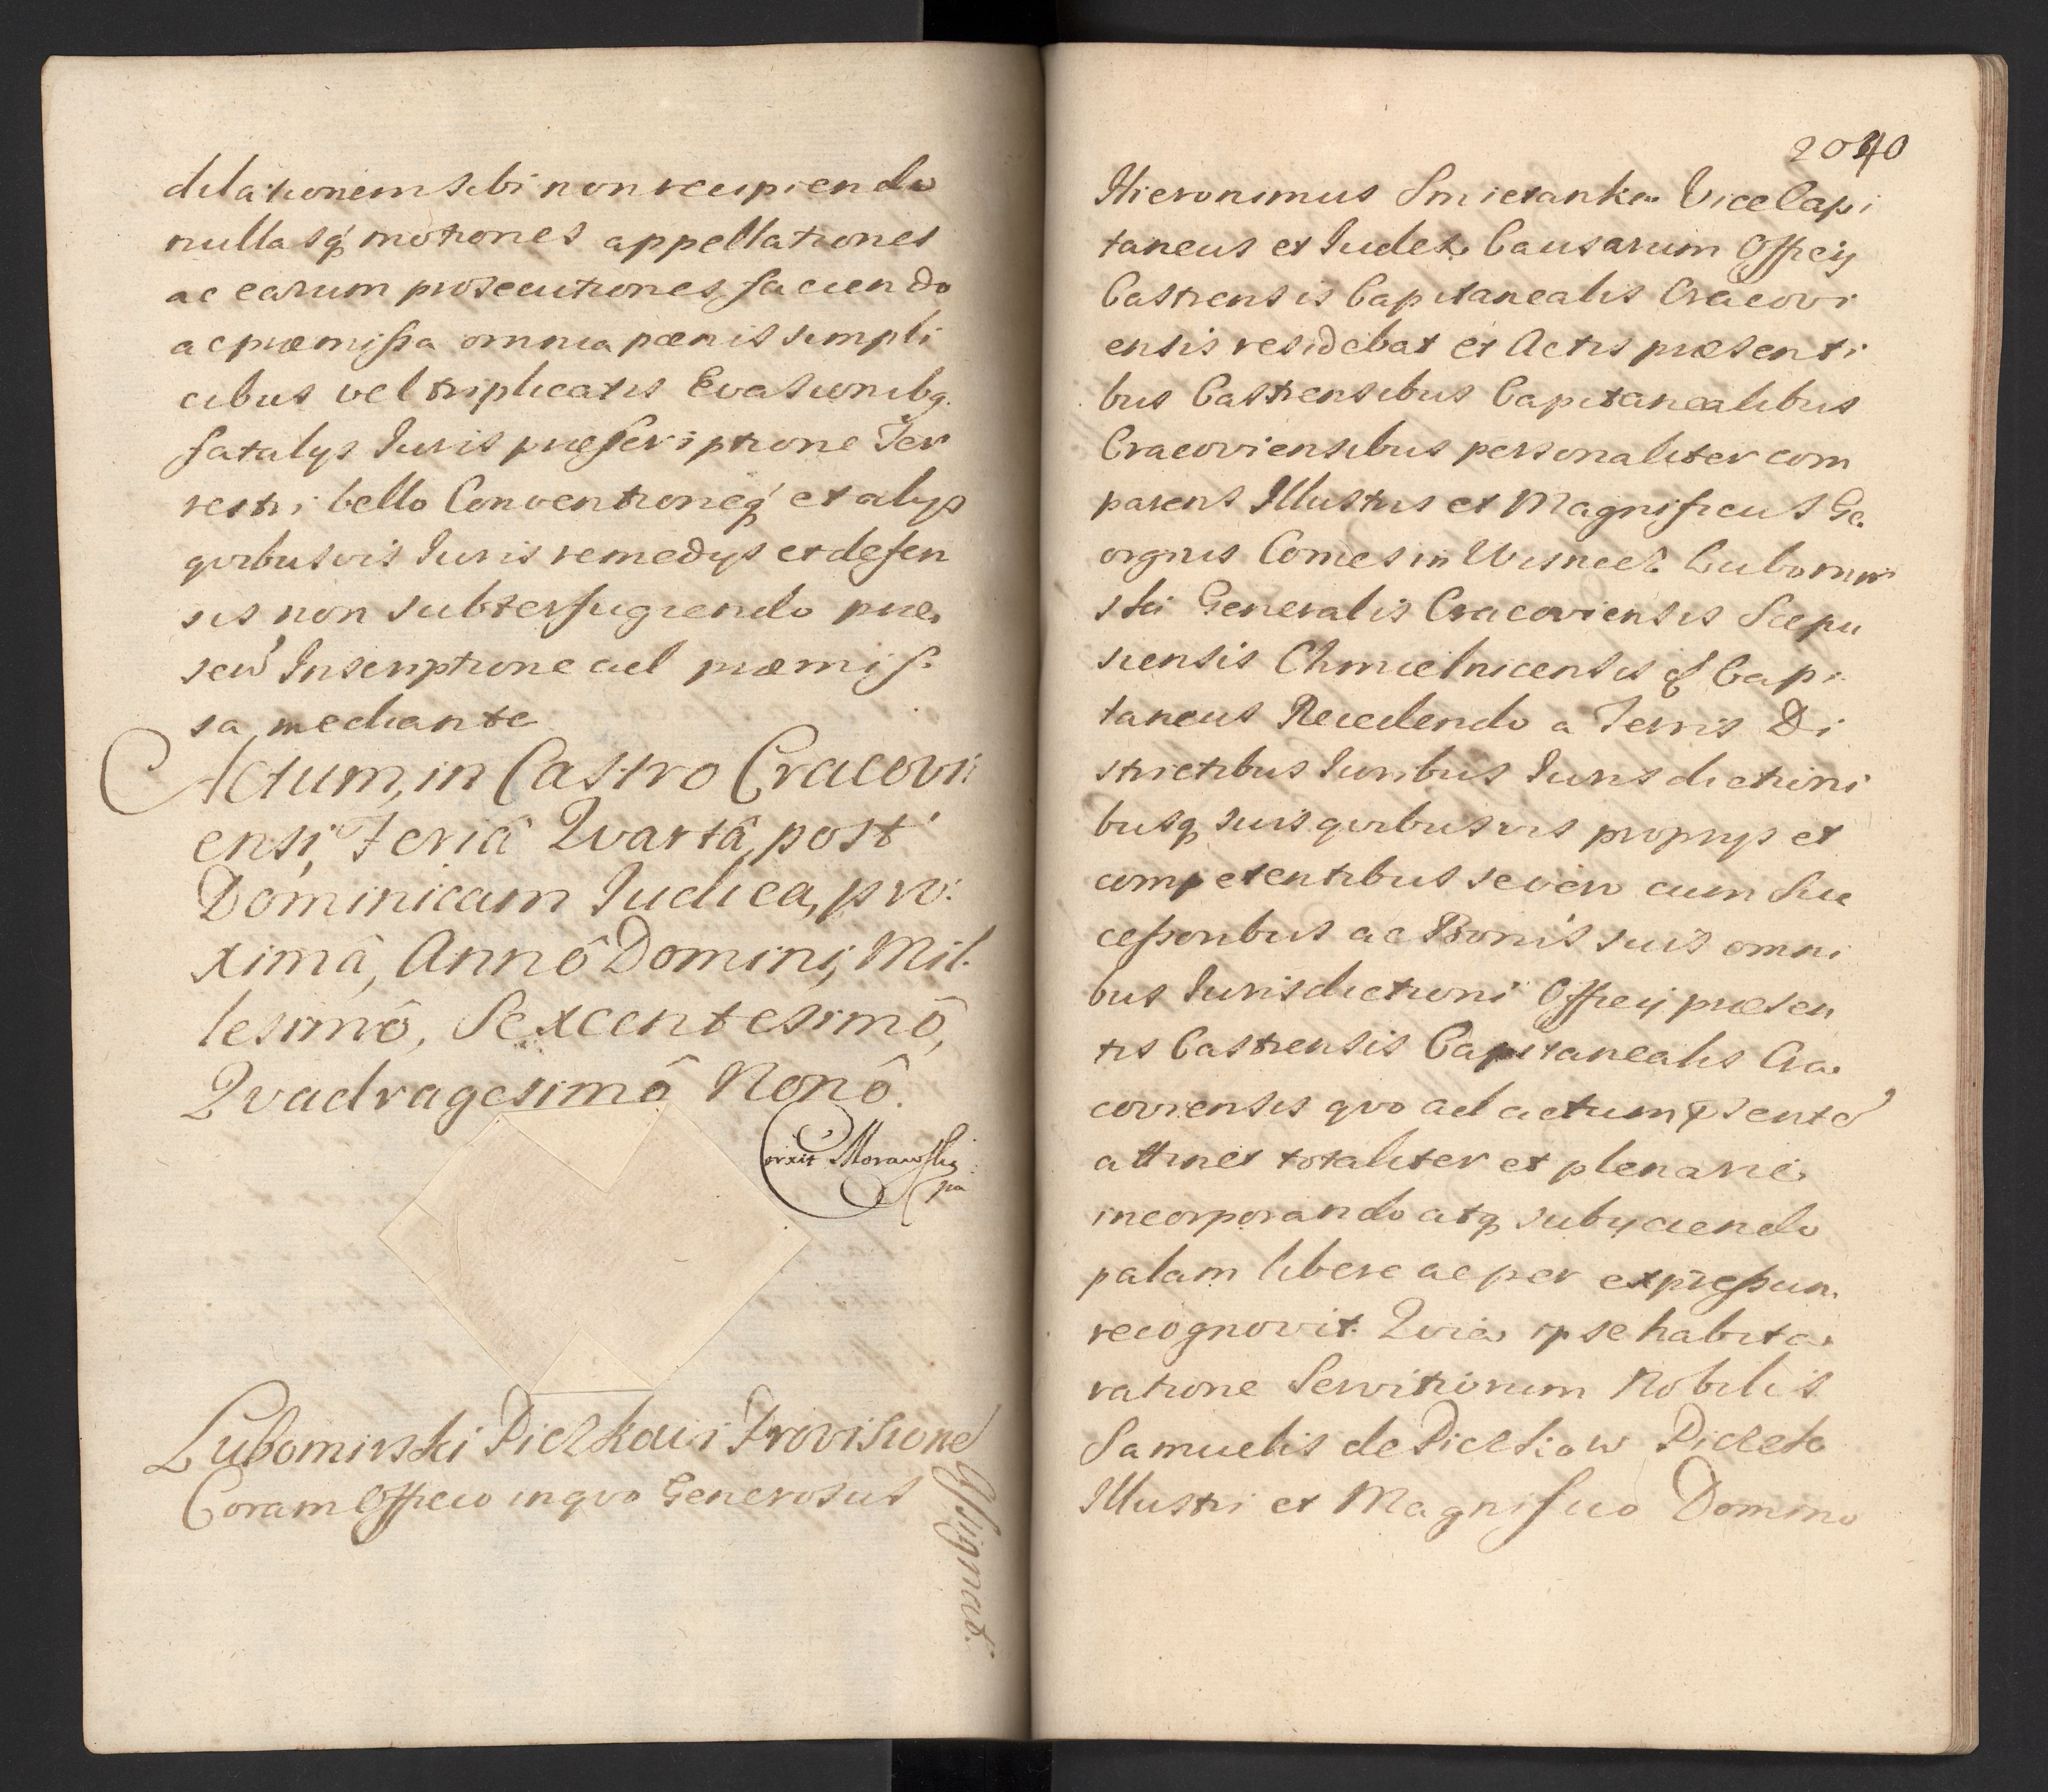 dilationem sibi non recipiendo
nullasq́ motiones appellationes
ac earum prosecutiones faciendo
ac præmissa omnia pænis simpli
cibus vel triplicatis Evasionibq.
fatalys Iuris præscriptione Ter
restri bello Conventioneq́ et alys
qvibusvis Iuris remedys et defen
sis non subterfugiendo præ
sen Inscriptione ad præmis
sa mediante
Actum, in Castro Cracovi
ensi, Feriâ Qvartâ, post
Dominicam Iudica, pro:
ximâ, Annô Domini, Mil-
lesimô, Sexcentesimô,
Qvadragesimô Nonô.
Corrixit Morawski
pa
Lubomirski Piczkowi Provisione
Assignat.
Coram Officio in qvo Generosus
2040
Hieronimus Smietanka Vice Capi
taneus et Iudex Causarum Officy
Castrensis Capitanealis Cracovi
ensis residebat et Actis præsenti
bus Castrensibus Capitanealibus
Cracoviensibus personaliter com
parens Illustris et Magnificus Ge
orgius Comes in Wisnicz Lubomir
ski Generalis Cracoviensis Scepu
siensis Chmielnicensis q́ Capi
taneus Recedendo a Terris Di
strictibus Iuribus Iurisdictioni
busq́ suis qvibusvis proprys et
competentibus seven cum Suc
cessoribus ac Bonis suis omni
bus Iurisdictioni Officy præsen
tis Castrensis Capitanealis Cra
coviensis qvo ad actum psente
attinet totaliter et plenarie
incorporando atq́ subyciendo
palam libere ac per expressum
recognovit. Qvia ipse habita
ratione Servitiorum Nobilis
Samuelis de Piczkow Piczek
Illustri et Magnifico Domino